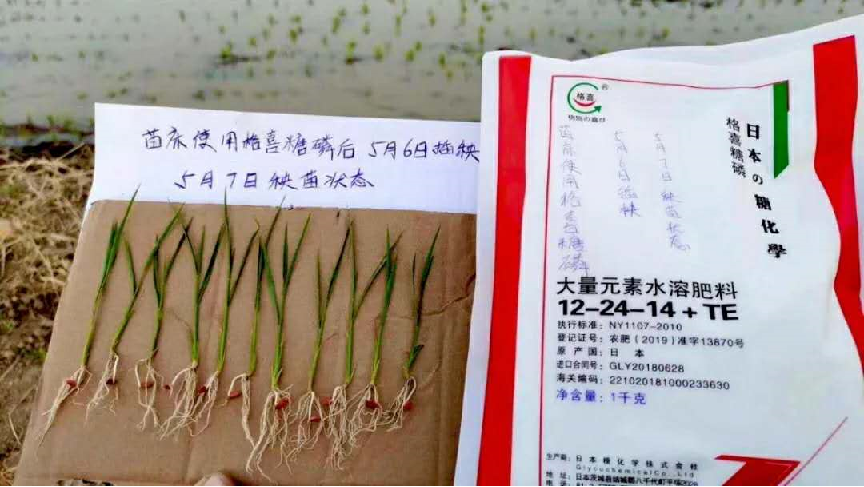 苗床使用格喜糖磷后 5月6日插秧
5月7日秧苗状态
格喜
日本の糖化學
格喜糖磷
5月7日秧苗状态
5月6日插秧
苗床使用格喜糖磷
大量元素水溶肥料
12-24-14+TE
执行标准：NY1107-2010
登记证号：农肥（2019）准字13870号
原产国：日本
进口合同号：GLY20180628
海关编码：221020181000233630
净含量：1千克
日本糖化学株式会社
Glycochemical Co., Ltd